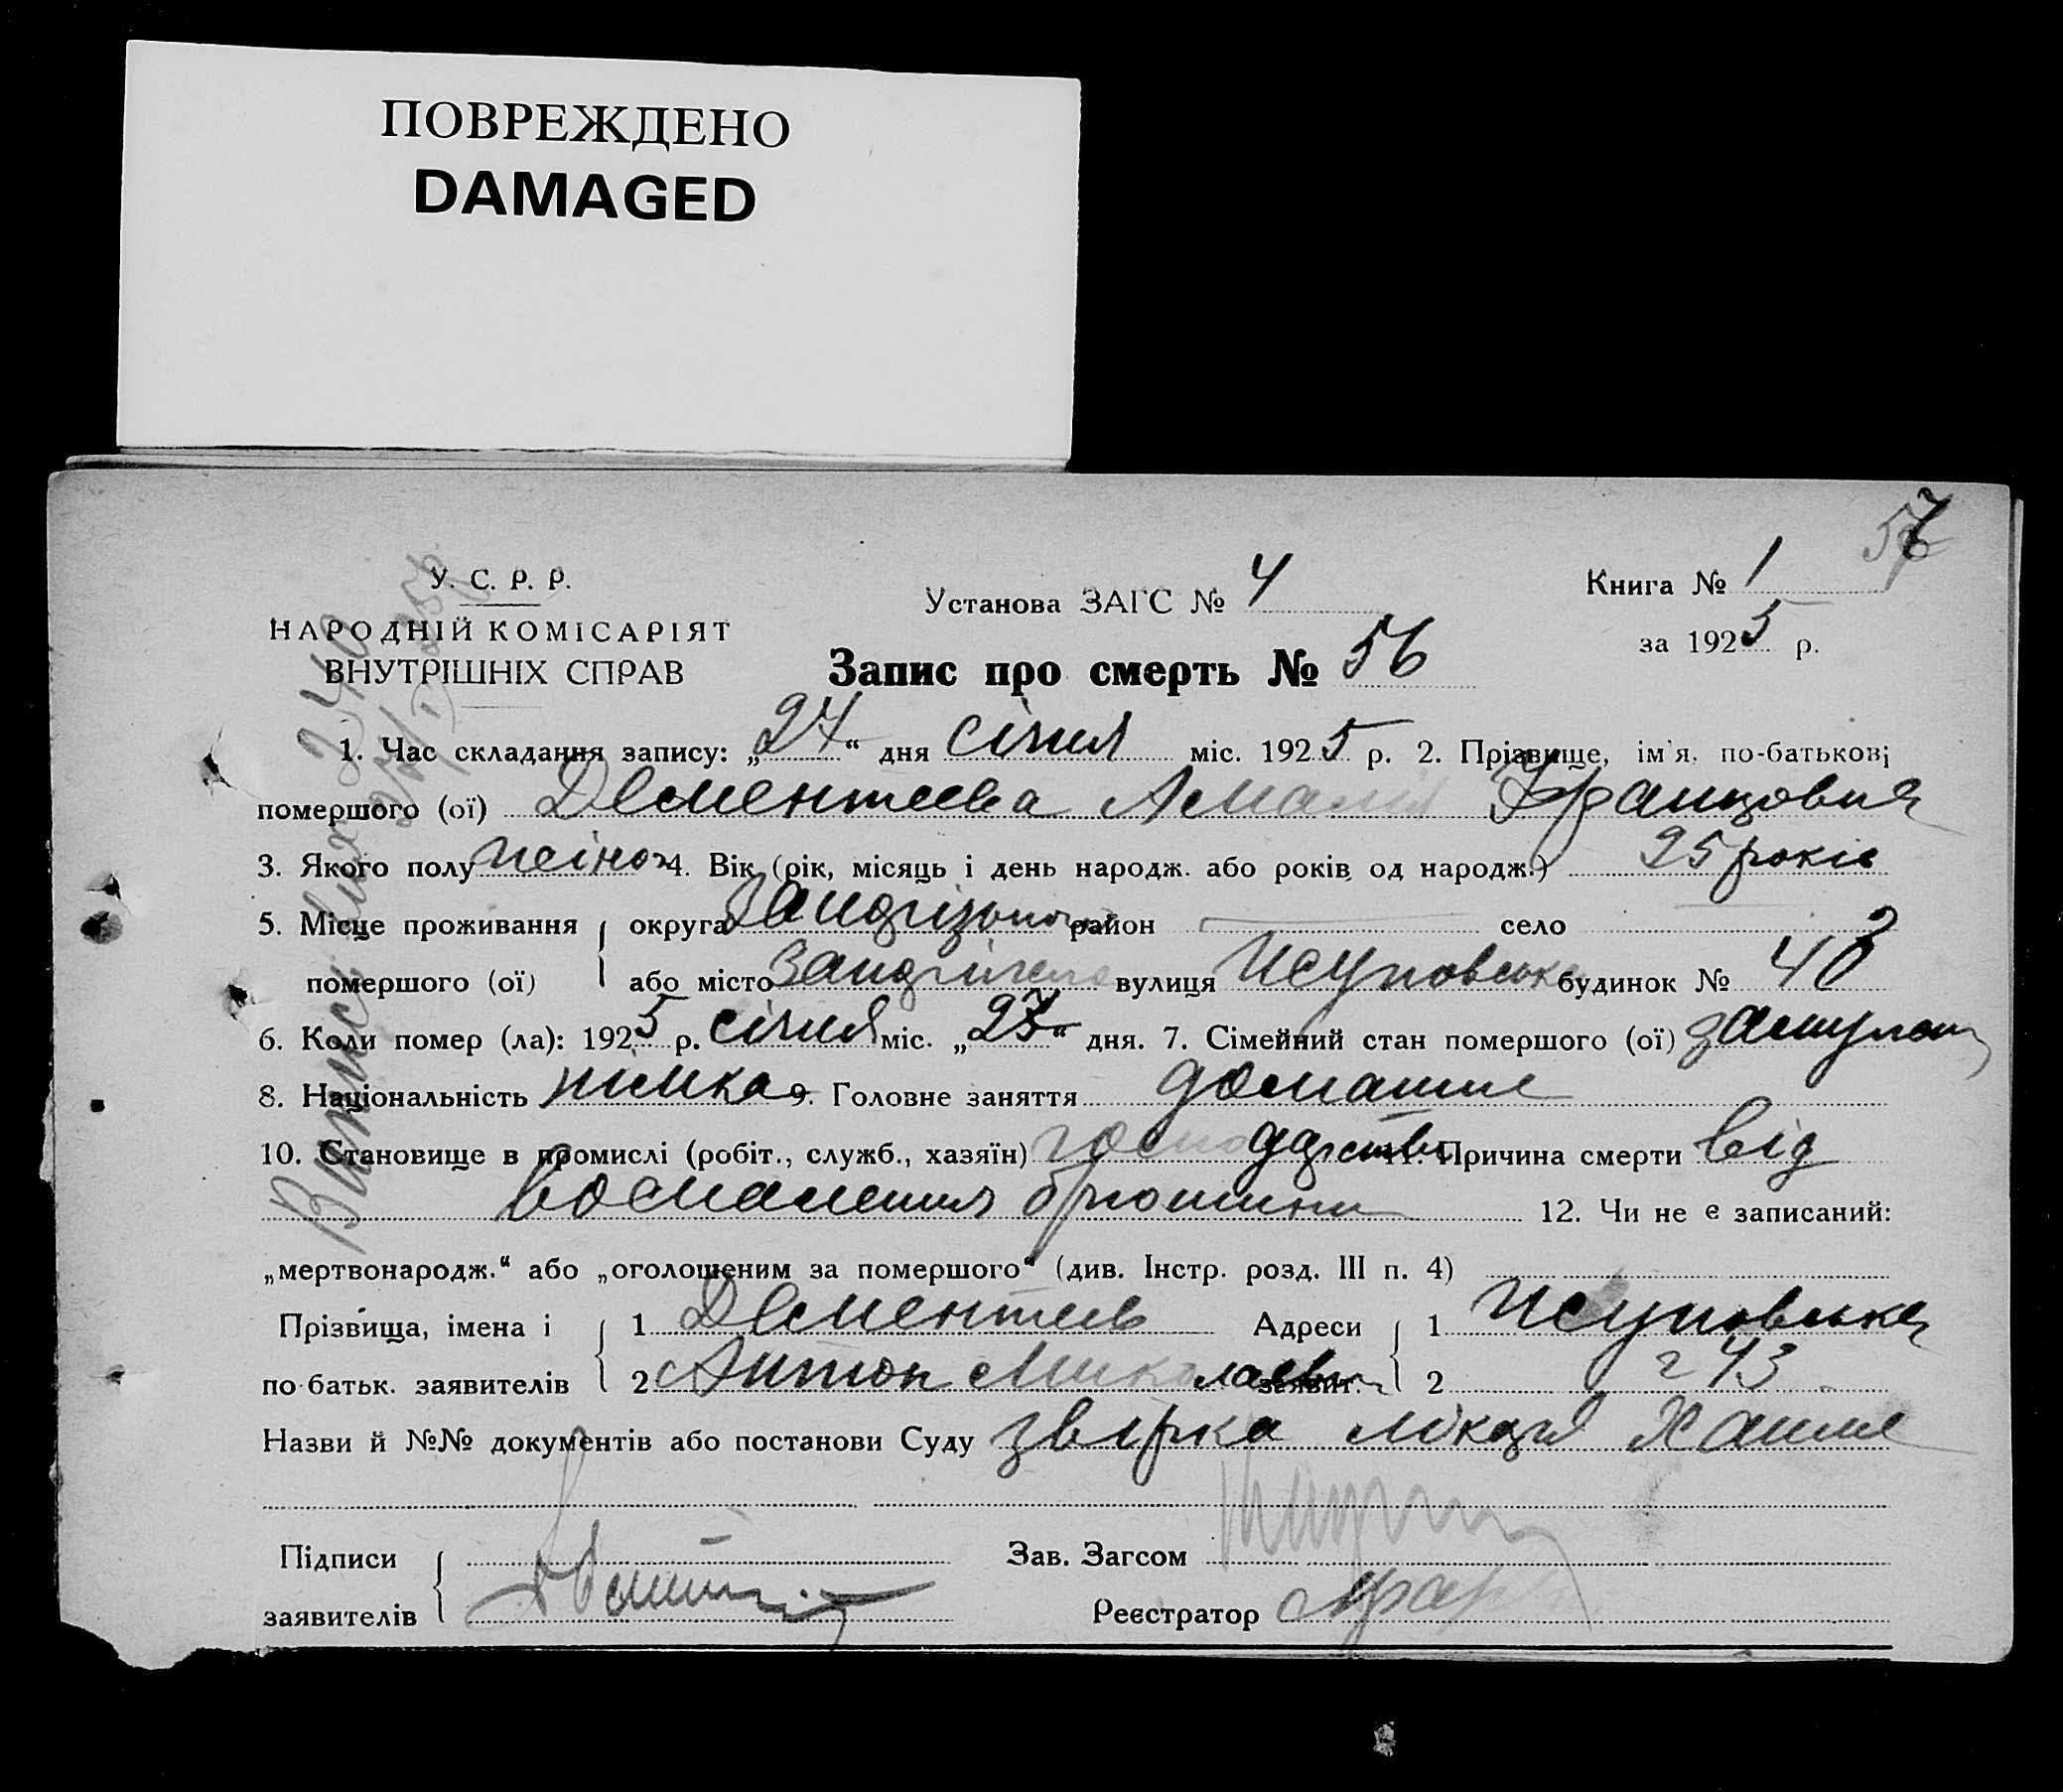 ПОВРЕЖДЕНО
DAMAGED
57
У. С. Р. Р.
НАРОДНІЙ КОМІСАРІЯТ
ВНУТРІШНІХ СПРАВ
Установа ЗАГС № 4
Книга № 1
за 1925 р.
Запис про смерть № 56
1. Час складання запису: „27“ дня січня міс. 1925 р. 2. Прізвище, ім'я, по-батькові
помершого (ої) Дементеева Амалія Францовна
3. Якого полу жіноч 4. Вік (рік, місяць і день народж. або років од народж.) 25 років
5. Місце проживання округа район село
помершого (ої) або місто вулиця будинок № 43
6. Коли помер (ла): 1925 р. січня міс. „27“ дня. 7. Сімейний стан помершого (ої) замужем
8. Національність німка 9. Головне заняття домашнє
10. Становище в промислі (робіт., служб., хазяїн) господарство 11. Причина смерти від
воспаления брюшини 12. Чи не є записаний:
„мертвонародж.“ або „оголошеним за помершого“ (див. Інстр. розд. III п. 4)
Прізвища, імена і 1 Дементеев Адреси 1
по-батьк. заявителів 2 Антон Миколаев заявит. 2 43
Назви й №№ документів або постанови Суду лікаря
Підписи Зав. Загсом
заявителів Реєстратор